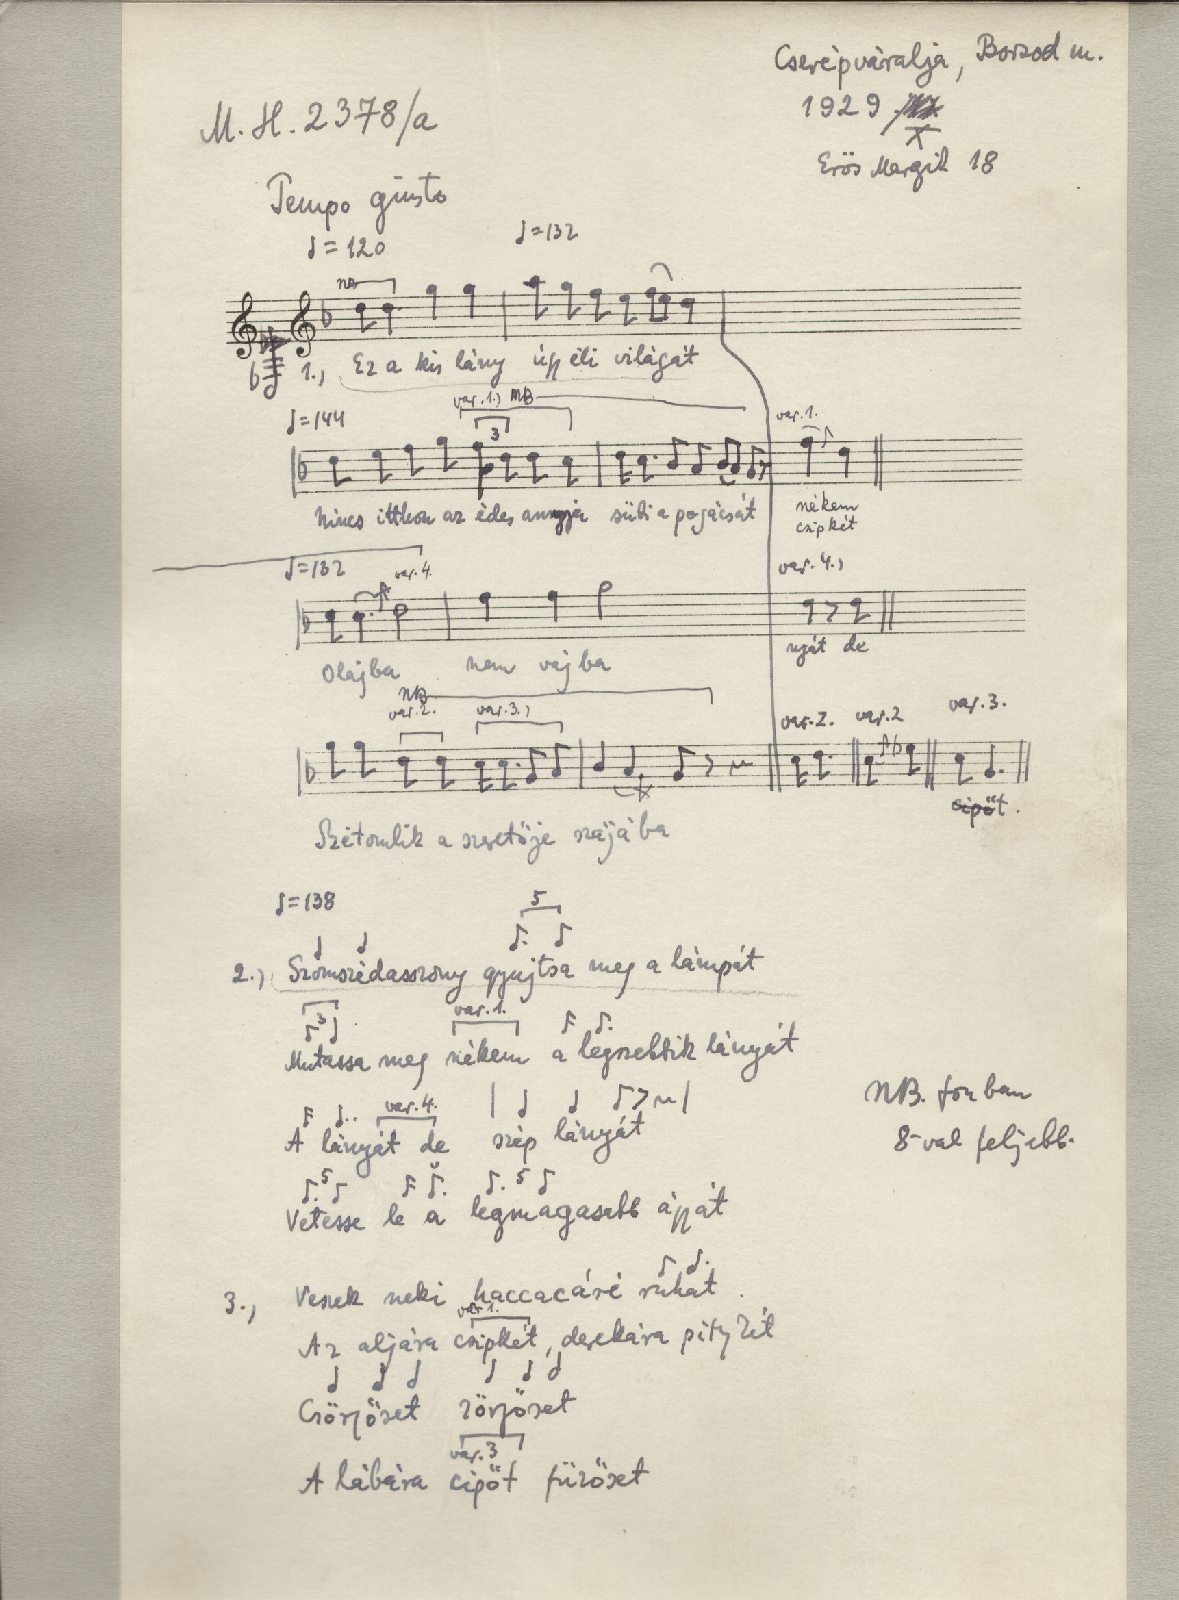 Cserépváralja, Borsod m.
M. H. 2378/a
1929
X
Erős Margit 18
Tempo giusto
♩=120
♩=132
NB
1., Ez a kis lány úgy éli világát
♩=144
var. 1.) NB
3
var. 1.
Nincs itthon az édes annyja süti a pogácsát
nékem
csipkét
♩=132
var. 4.
var. 4.,
Olajba nem vajba
nyát de
NB
var. 2.
var. 3.,
var. 2.
var. 2
var. 3.
Szétomlik a szeretője szájába
cipőt.
♩=138
5
2., Szomszédasszony gyujtsa meg a lámpát
3
var. 1.
Mutassa meg nékem a legszebbik lányát
var. 4.
A lányát de szép lányát
NB. fonban
8-val feljebb.
5
5
Vetesse le a legmagasabb ágyát
3., Veszek neki haccacáré ruhát.
var. 1.
Az aljára csipkét, derekára pitykét
Csörgőset zörgőset
var. 3
A lábára cipőt fűzőset